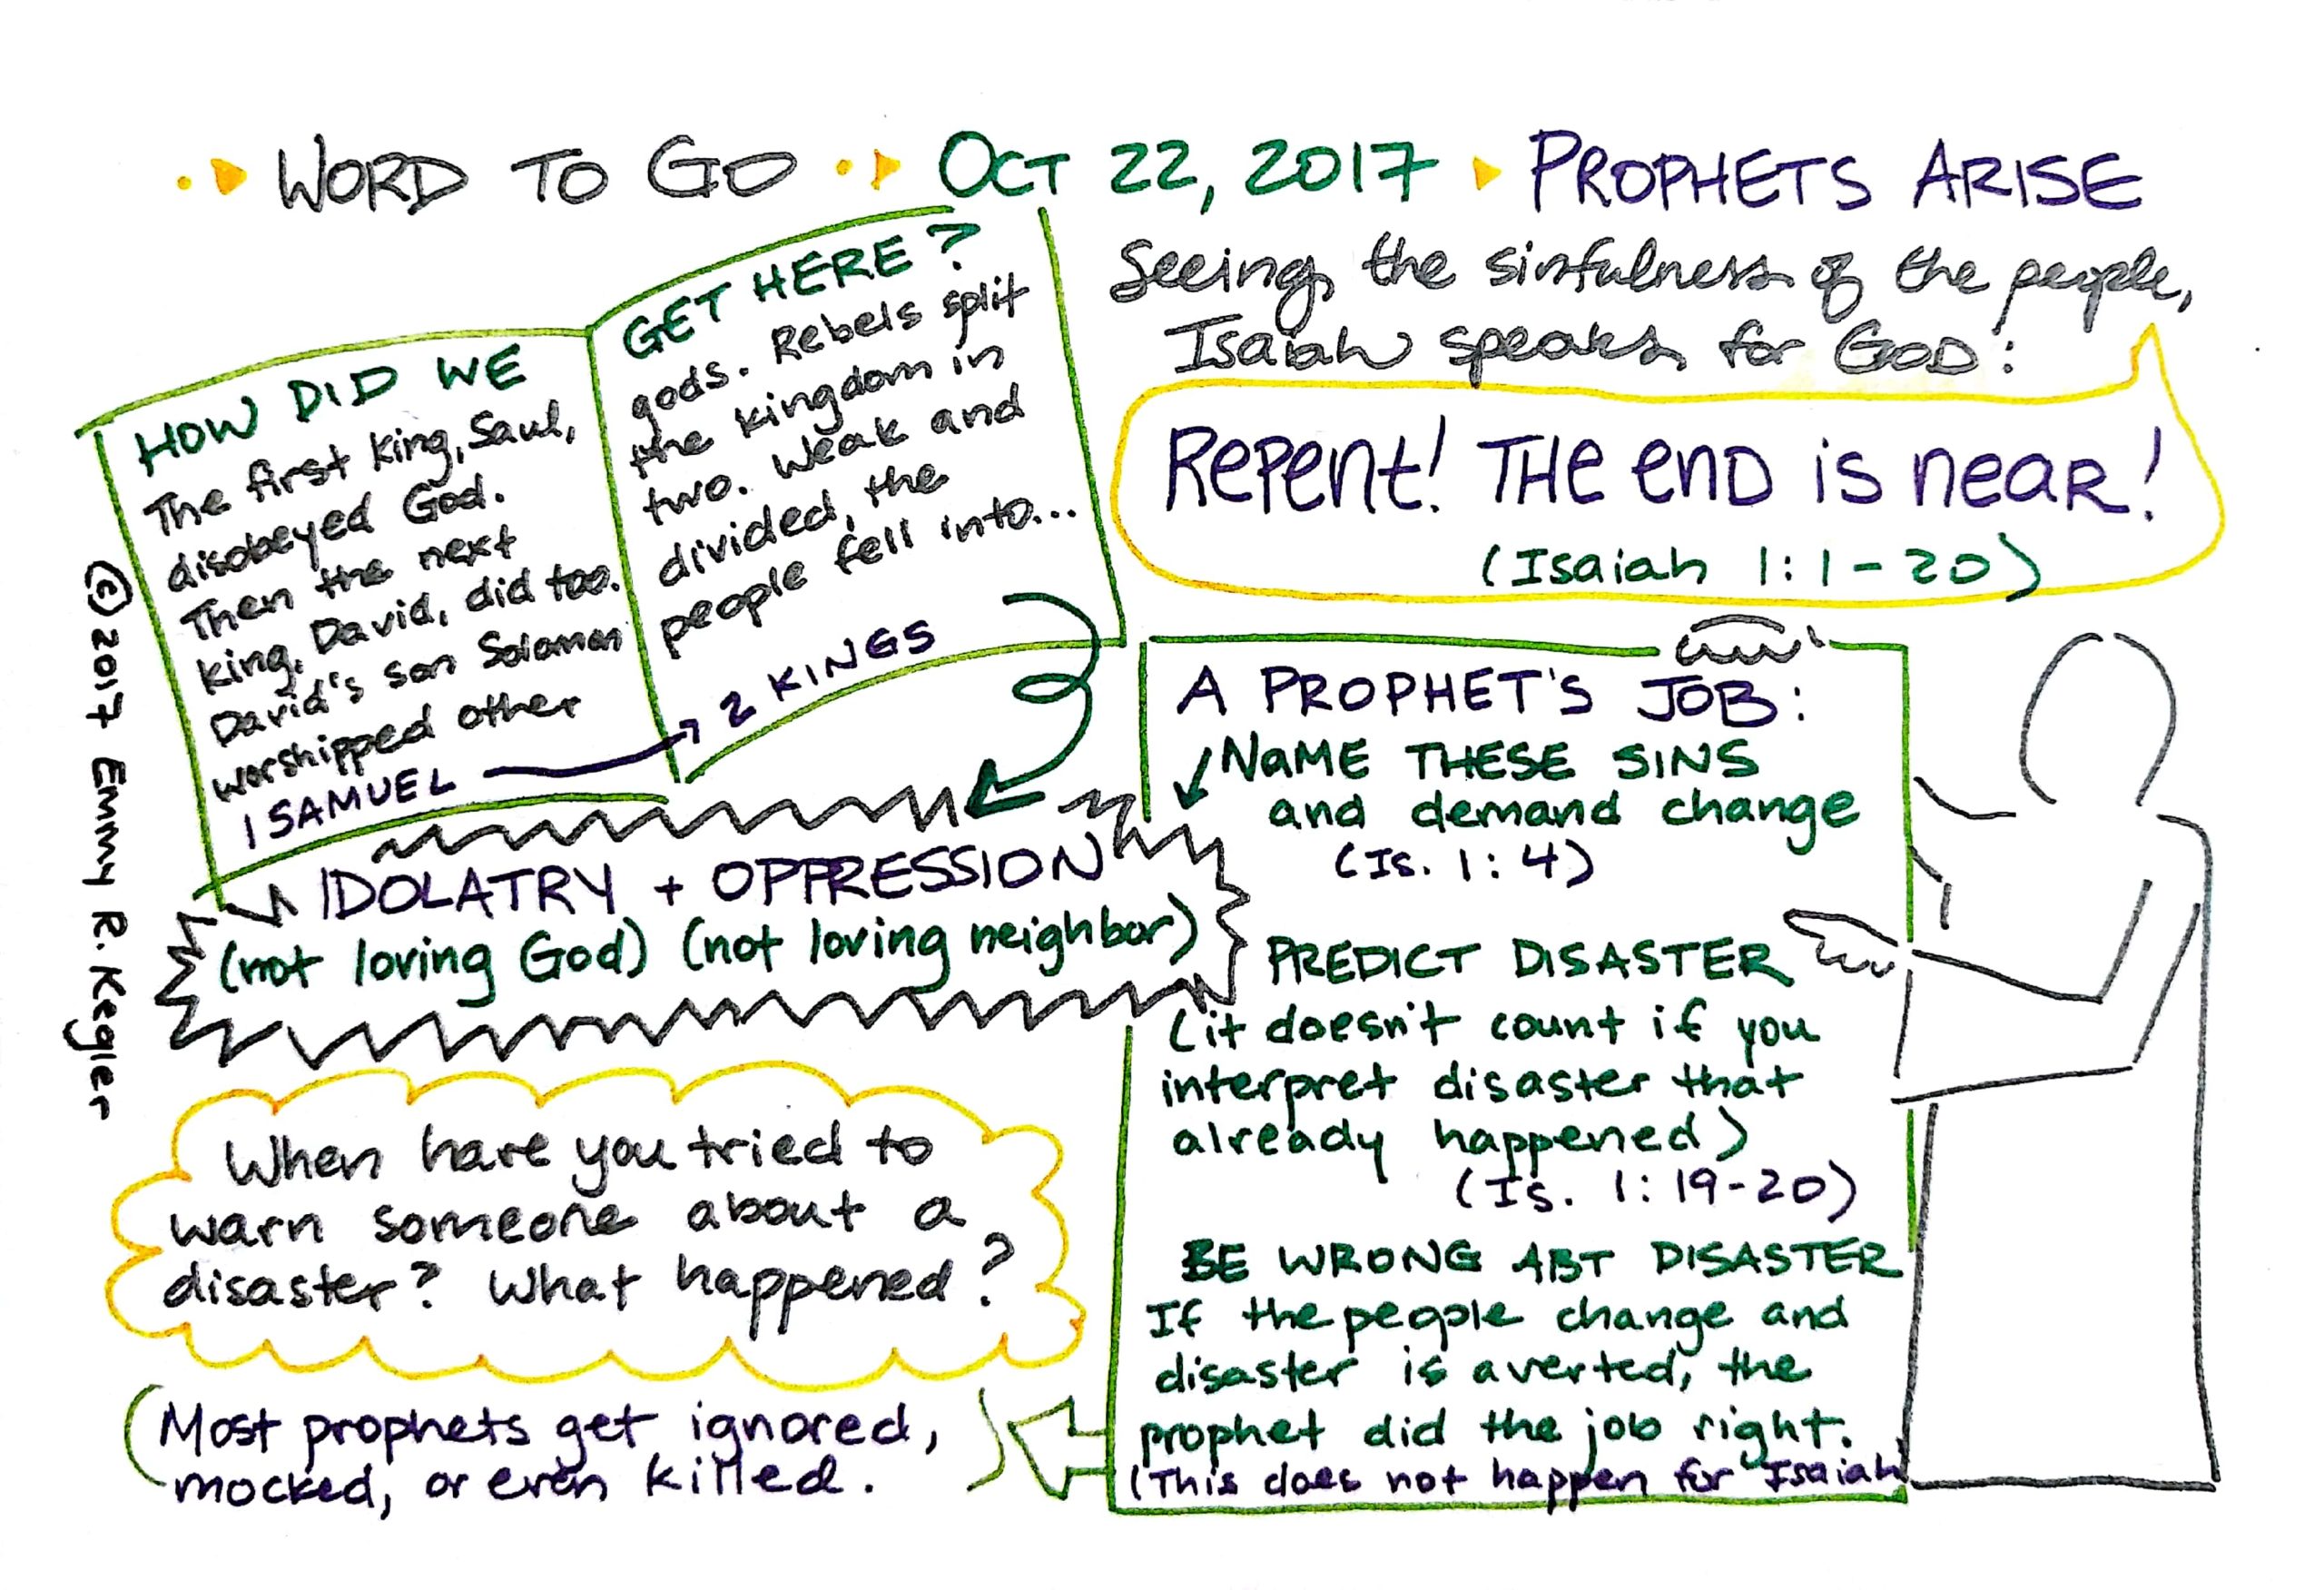 WORD TO GO OCT 22, 2017 PROPHETS ARISE
Seeing the sinfulness of the people,
Isaiah speaks for GOD:
Repent! THE END IS NEAR!
(Isaiah 1:1-20)
HOW DID WE
The first king, Saul,
disobeyed God.
Then the next
king, David, did too.
David's son Solomon
worshipped other
1 SAMUEL
GET HERE?
gods. Rebels split
the kingdom in
two. Weak and
divided, the
people fell into...
2 KINGS
IDOLATRY + OPPRESSION
(not loving God) (not loving neighbor)
A PROPHET'S JOB:
NAME THESE SINS
and demand change
(Is. 1:4)
PREDICT DISASTER
(it doesn't count if you
interpret disaster that
already happened)
(Is. 1:19-20)
BE WRONG ABT DISASTER
If the people change and
disaster is averted, the
prophet did the job right.
(This does not happen for Isaiah)
When have you tried to
warn someone about a
disaster? What happened?
(Most prophets get ignored,
mocked, or even killed.)
© 2017 Emmy R. Kegler